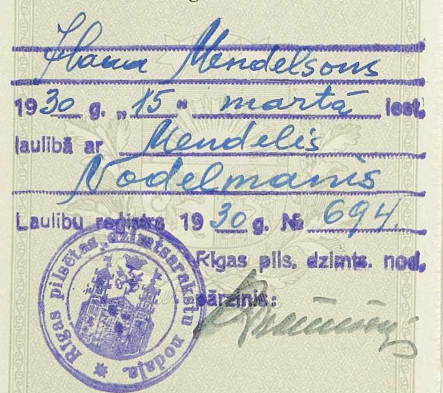 Hana Mendelsons
1930 g. „15" martā iest.
laulībā ar Mendelis
Nodelmanis
Laulību reģistra 1930 g. № 694
Rīgas pils. dzimts. nod.
pārzinis:
Rīgas pilsētas dzimtsarakstu nodaļa